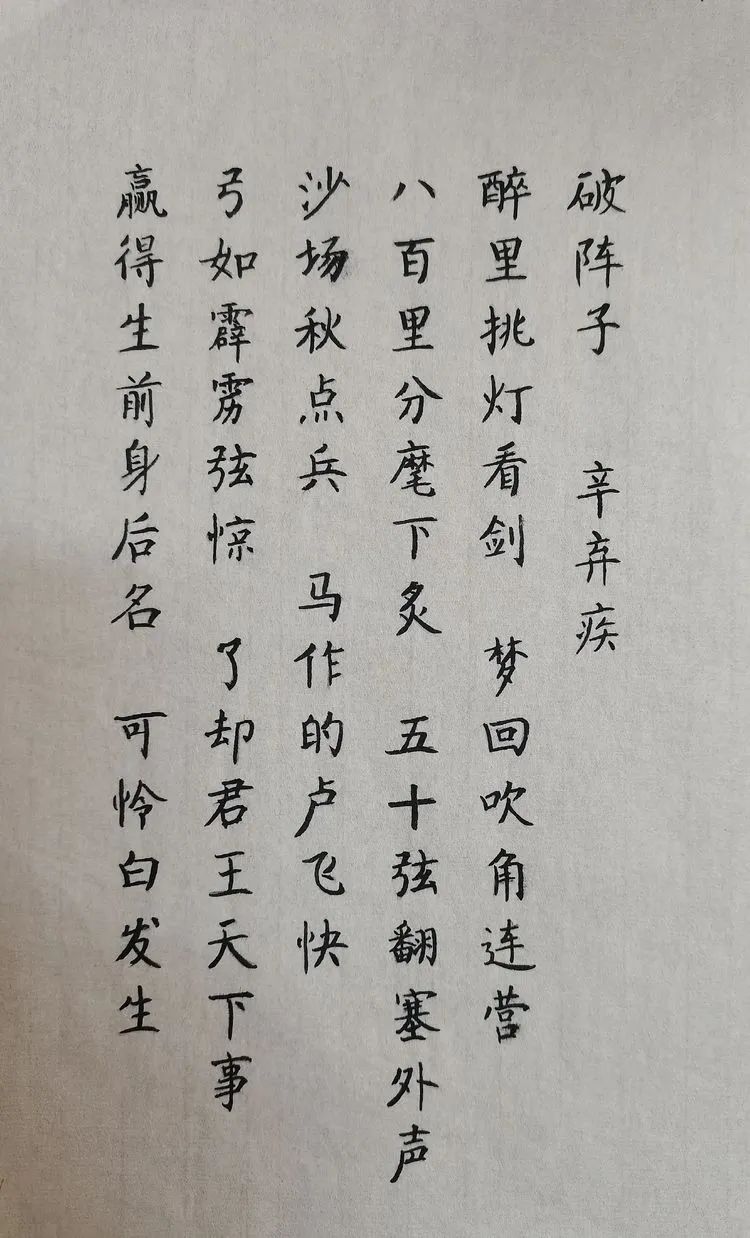 破阵子 辛弃疾
醉里挑灯看剑 梦回吹角连营
八百里分麾下炙 五十弦翻塞外声
沙场秋点兵 马作的卢飞快
弓如霹雳弦惊 了却君王天下事
赢得生前身后名 可怜白发生